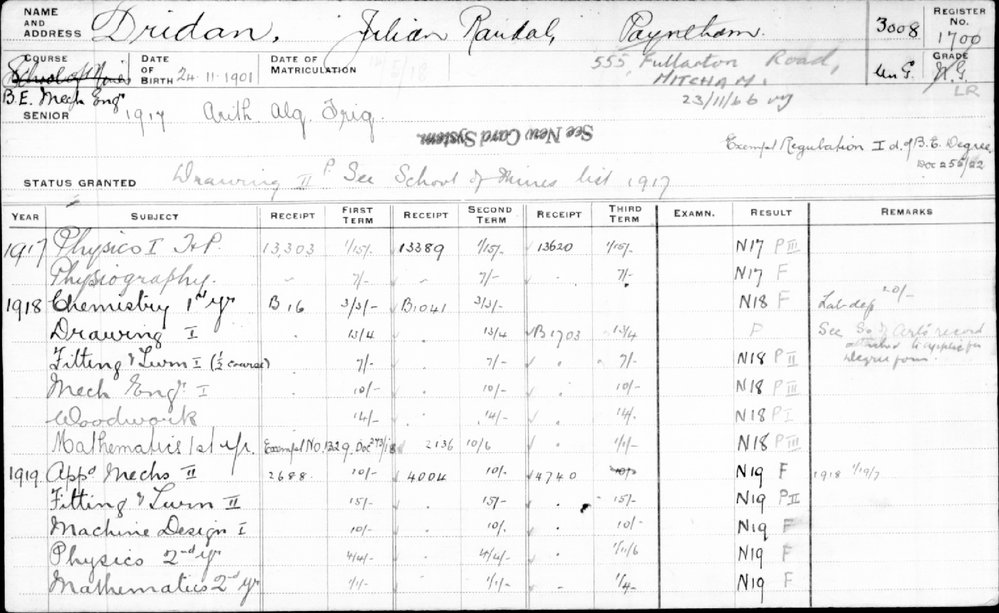 NAME AND ADDRESS Dridan, Julian Randal, Payneham. 3008 REGISTER No. 1700
555 Fullarton Road, MITCHAM. 23/11/66
COURSE School of Mines B.E. Mech Engr DATE OF BIRTH 24.11.1901 DATE OF MATRICULATION Un G. GRADE U.G. LR
SENIOR 1917 Arith. Alg. Trig.
See New Card System
Exempt Regulation I d. of B.E. Degree. Doc 256/22
STATUS GRANTED Drawing II P See School of Mines list 1917
YEAR SUBJECT RECEIPT FIRST TERM RECEIPT SECOND TERM RECEIPT THIRD TERM EXAMN. RESULT REMARKS
1917 Physics I H.P. 13,303 1/15/- 13389 1/15/- 13620 1/15/- N17 P III
Physiography. " 7/- " 7/- " 7/- N17 F
1918 Chemistry 1st yr B 16 3/3/- B1041 3/3/- N18 F Lab dep 20/-
Drawing I . 13/4 . 13/4 B1703 13/4 P See So of Arts record
Fitting & Turn I (½ course) . 7/- . 7/- . 7/- N18 P II attached to applic for Degree form.
Mech Engr I . 10/- . 10/- . 10/- N18 P III
Woodwork . 14/- . 14/- . 14/- N18 P I
Mathematics 1st yr. Exempt No. 1329, Doc 273/18 2136 10/6 1/1/- N18 P III
1919 Appd Mechs II 2688 10/- 4004 10/- 4740 10/- N19 F 1918 1/19/7
Fitting & Turn II 15/- . 15/- . 15/- N19 P II
Machine Design I 10/- . 10/- . 10/- N19 F
Physics 2nd yr 4/4/- . 4/4/- . 1/11/6 N19 F
Mathematics 2nd yr 1/1/- . 1/1/- . 1/4/- N19 F